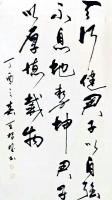 天行健君子以自强
不息地势坤君子
以厚德載物
丁酉之春